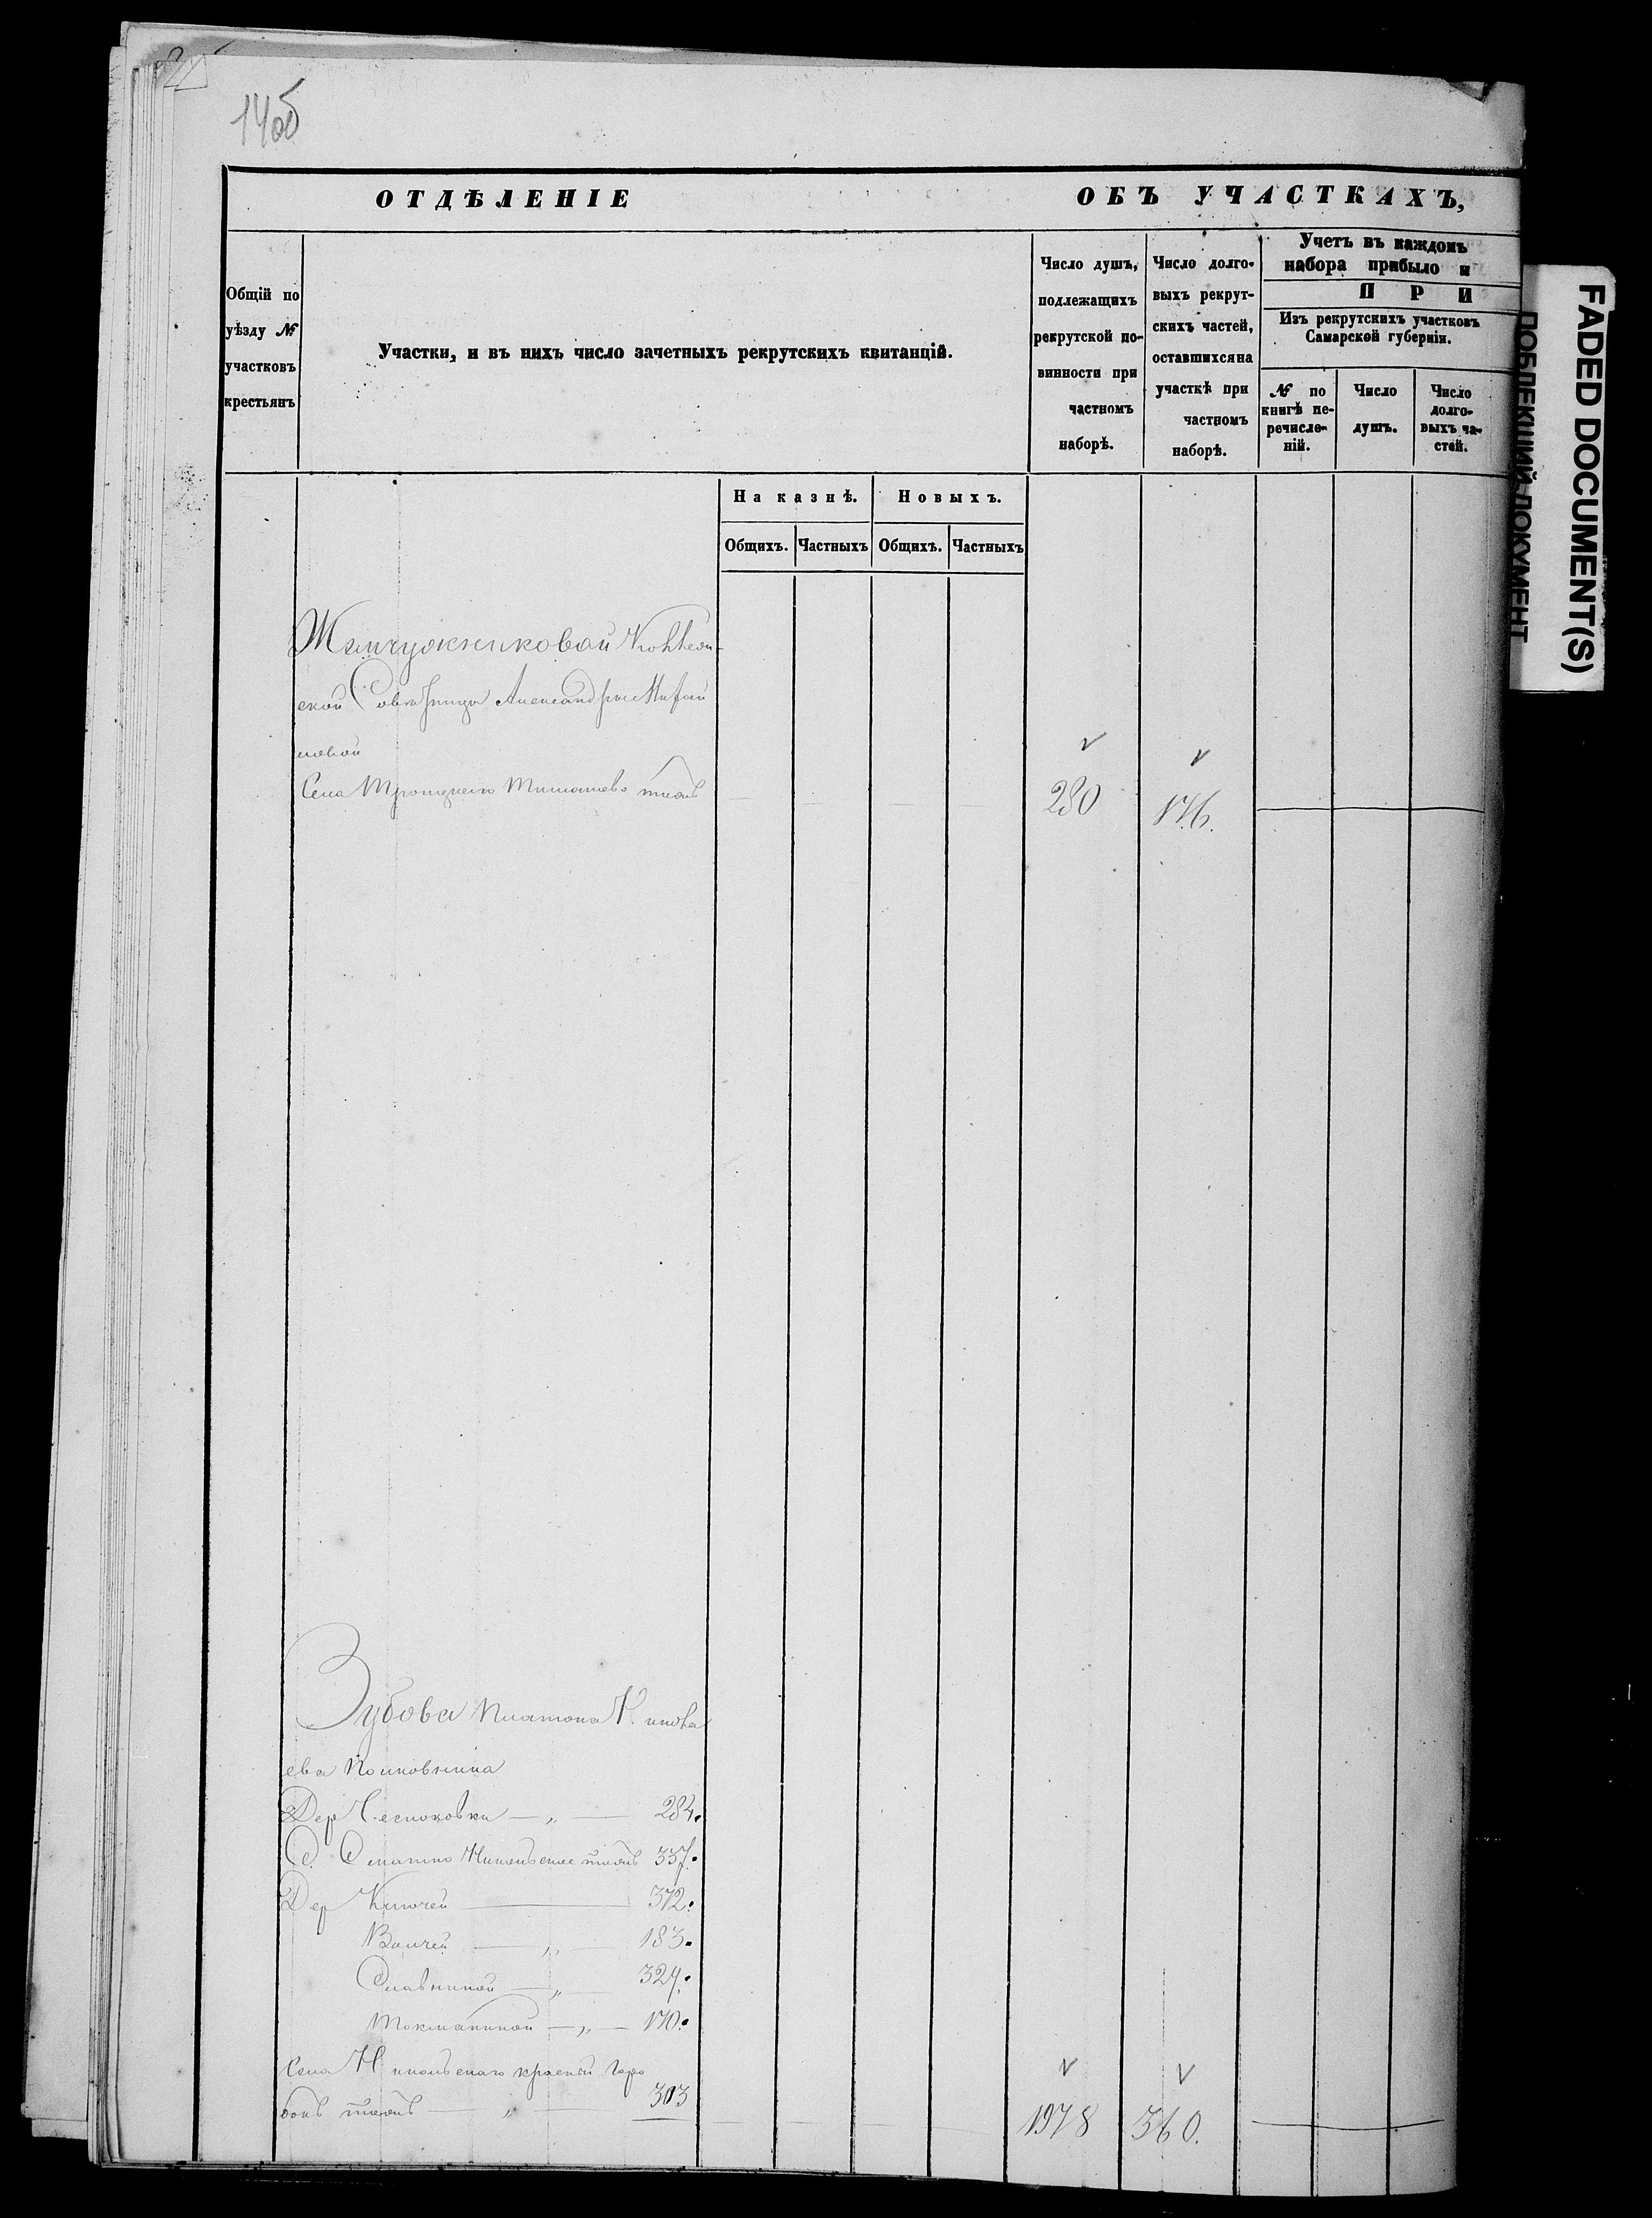 14об
ОТДѢЛЕНІЕ ОБЪ УЧАСТКАХЪ,
Общій по уѣзду № участковъ крестьянъ
Участки, и въ нихъ число зачетныхъ рекрутскихъ квитанцій.
Число душъ, подлежащихъ рекрутской повинности при частномъ наборѣ.
Число долговыхъ рекрутскихъ частей, оставшихся на участкѣ при частномъ наборѣ.
Учетъ въ каждомъ
набора прибыло и
ПРИ
Изъ рекрутскихъ участковъ
Самарской губерніи.
№ по книгѣ перечисленій.
Число душъ.
Число долговыхъ частей.
На казнѣ. Новыхъ.
Общихъ. Частныхъ Общихъ. Частныхъ
Жемчужниковой
ской Александры
ловой
Села Троицкаго тожъ 280 176.
Зубова Платона Никола
ева Полковника
Дер Чесноковки — „ — 284.
С. Спаско Никольское тожъ 337.
Дер Ключей — 372.
— „ — 183.
Славкиной — „ — 329.
Токмаклиной — „ — 170.
Села Никольскаго Красный Горо
докъ тожъ — „ — 303 1978 560.
FADED DOCUMENT(S)
ПОБЛЕКШИЙ ДОКУМЕНТ